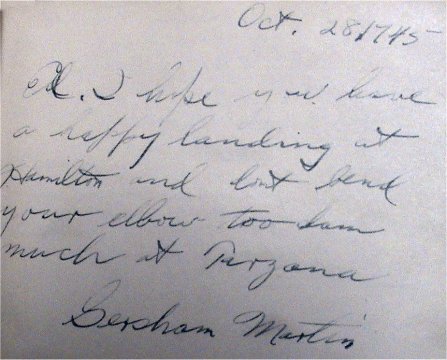 Oct. 28/745
Ed. I hope you have
a happy landing at
Hamilton and dont bend
your elbow too dam
much at Tarzana
Gersham Martin